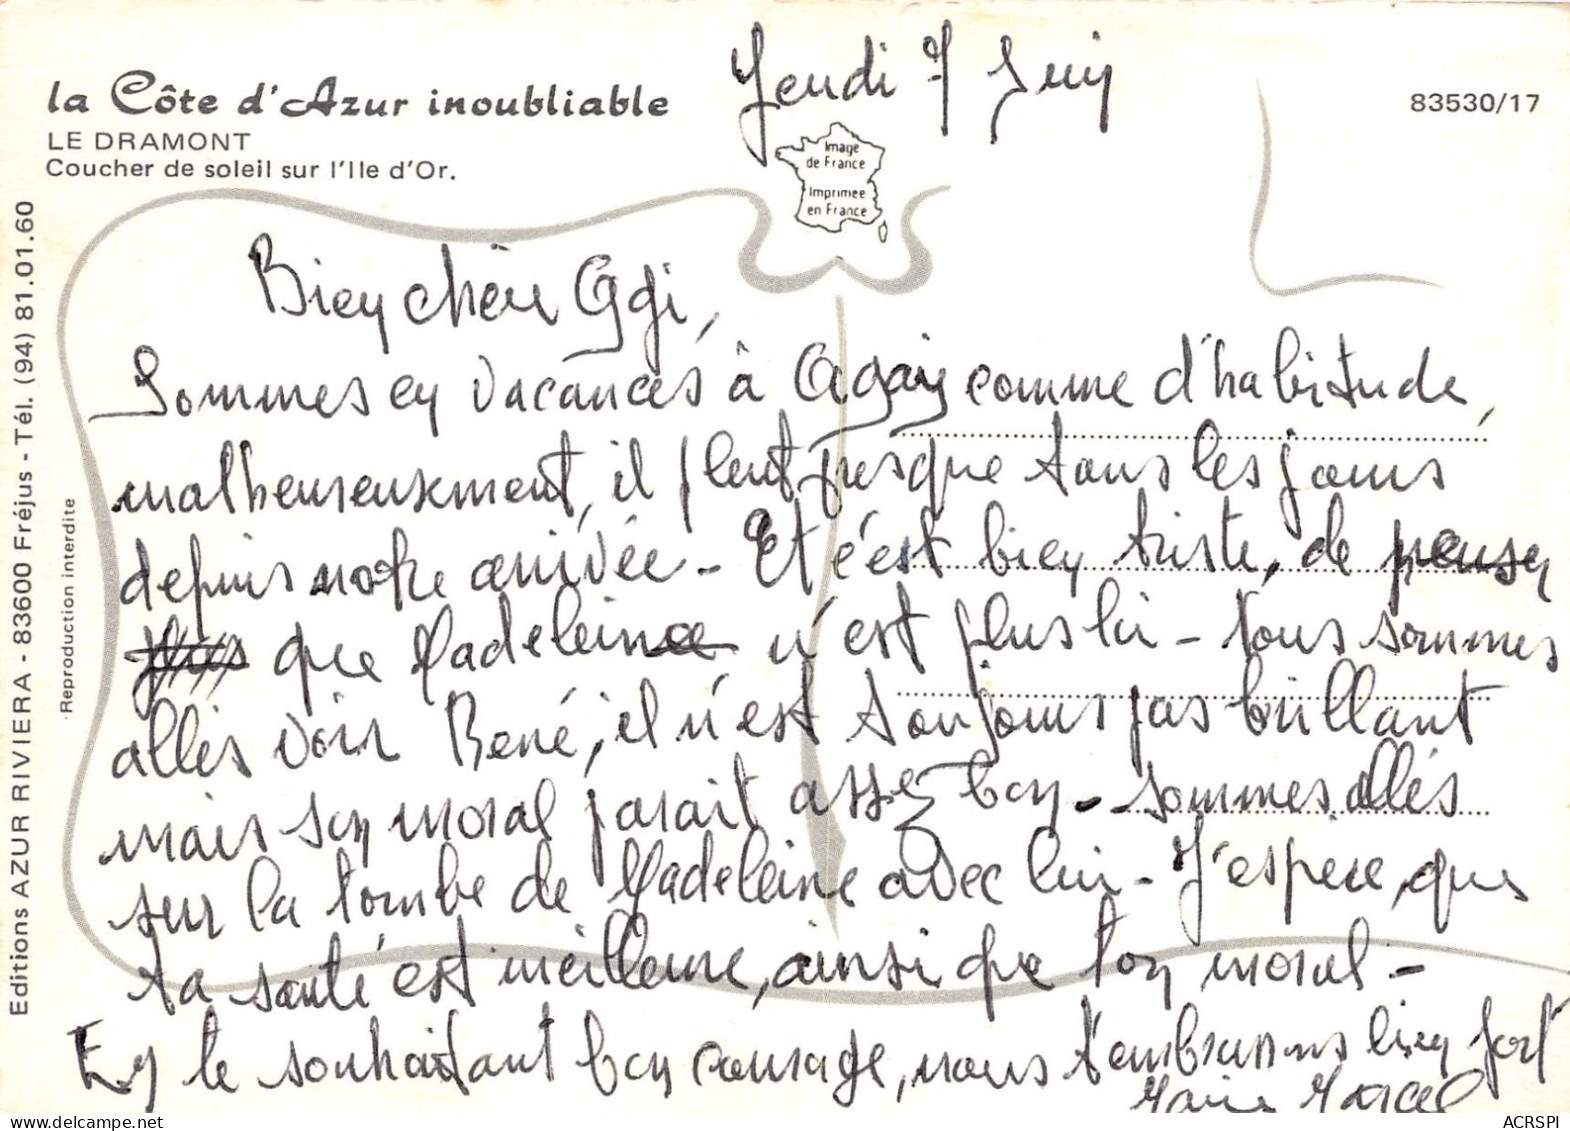 Jeudi 7 Juin
la Côte d'Azur inoubliable
LE DRAMONT
Coucher de soleil sur l'Ile d'Or.
83530/17
Image
de France
Imprimée
en France
Editions AZUR RIVIERA - 83600 Fréjus - Tél. (94) 81.01.60
Reproduction interdite
Bien chère Ggi,
Sommes en vacances à Agay comme d'habitude,
malheureusement, il pleut presque tous les jours
depuis notre arrivée - Et c'est bien triste, de penser
que Madeleine n'est plus là - Nous sommes
allés voir René, il n'est toujours pas brillant
mais son moral parait assez bon - sommes allés
sur la tombe de Madeleine avec lui - J'espère, que
ta santé est meilleure, ainsi que ton moral -
En te souhaitant bon courage, nous t'embrassons bien fort
Marie Marcel
ACRSPI